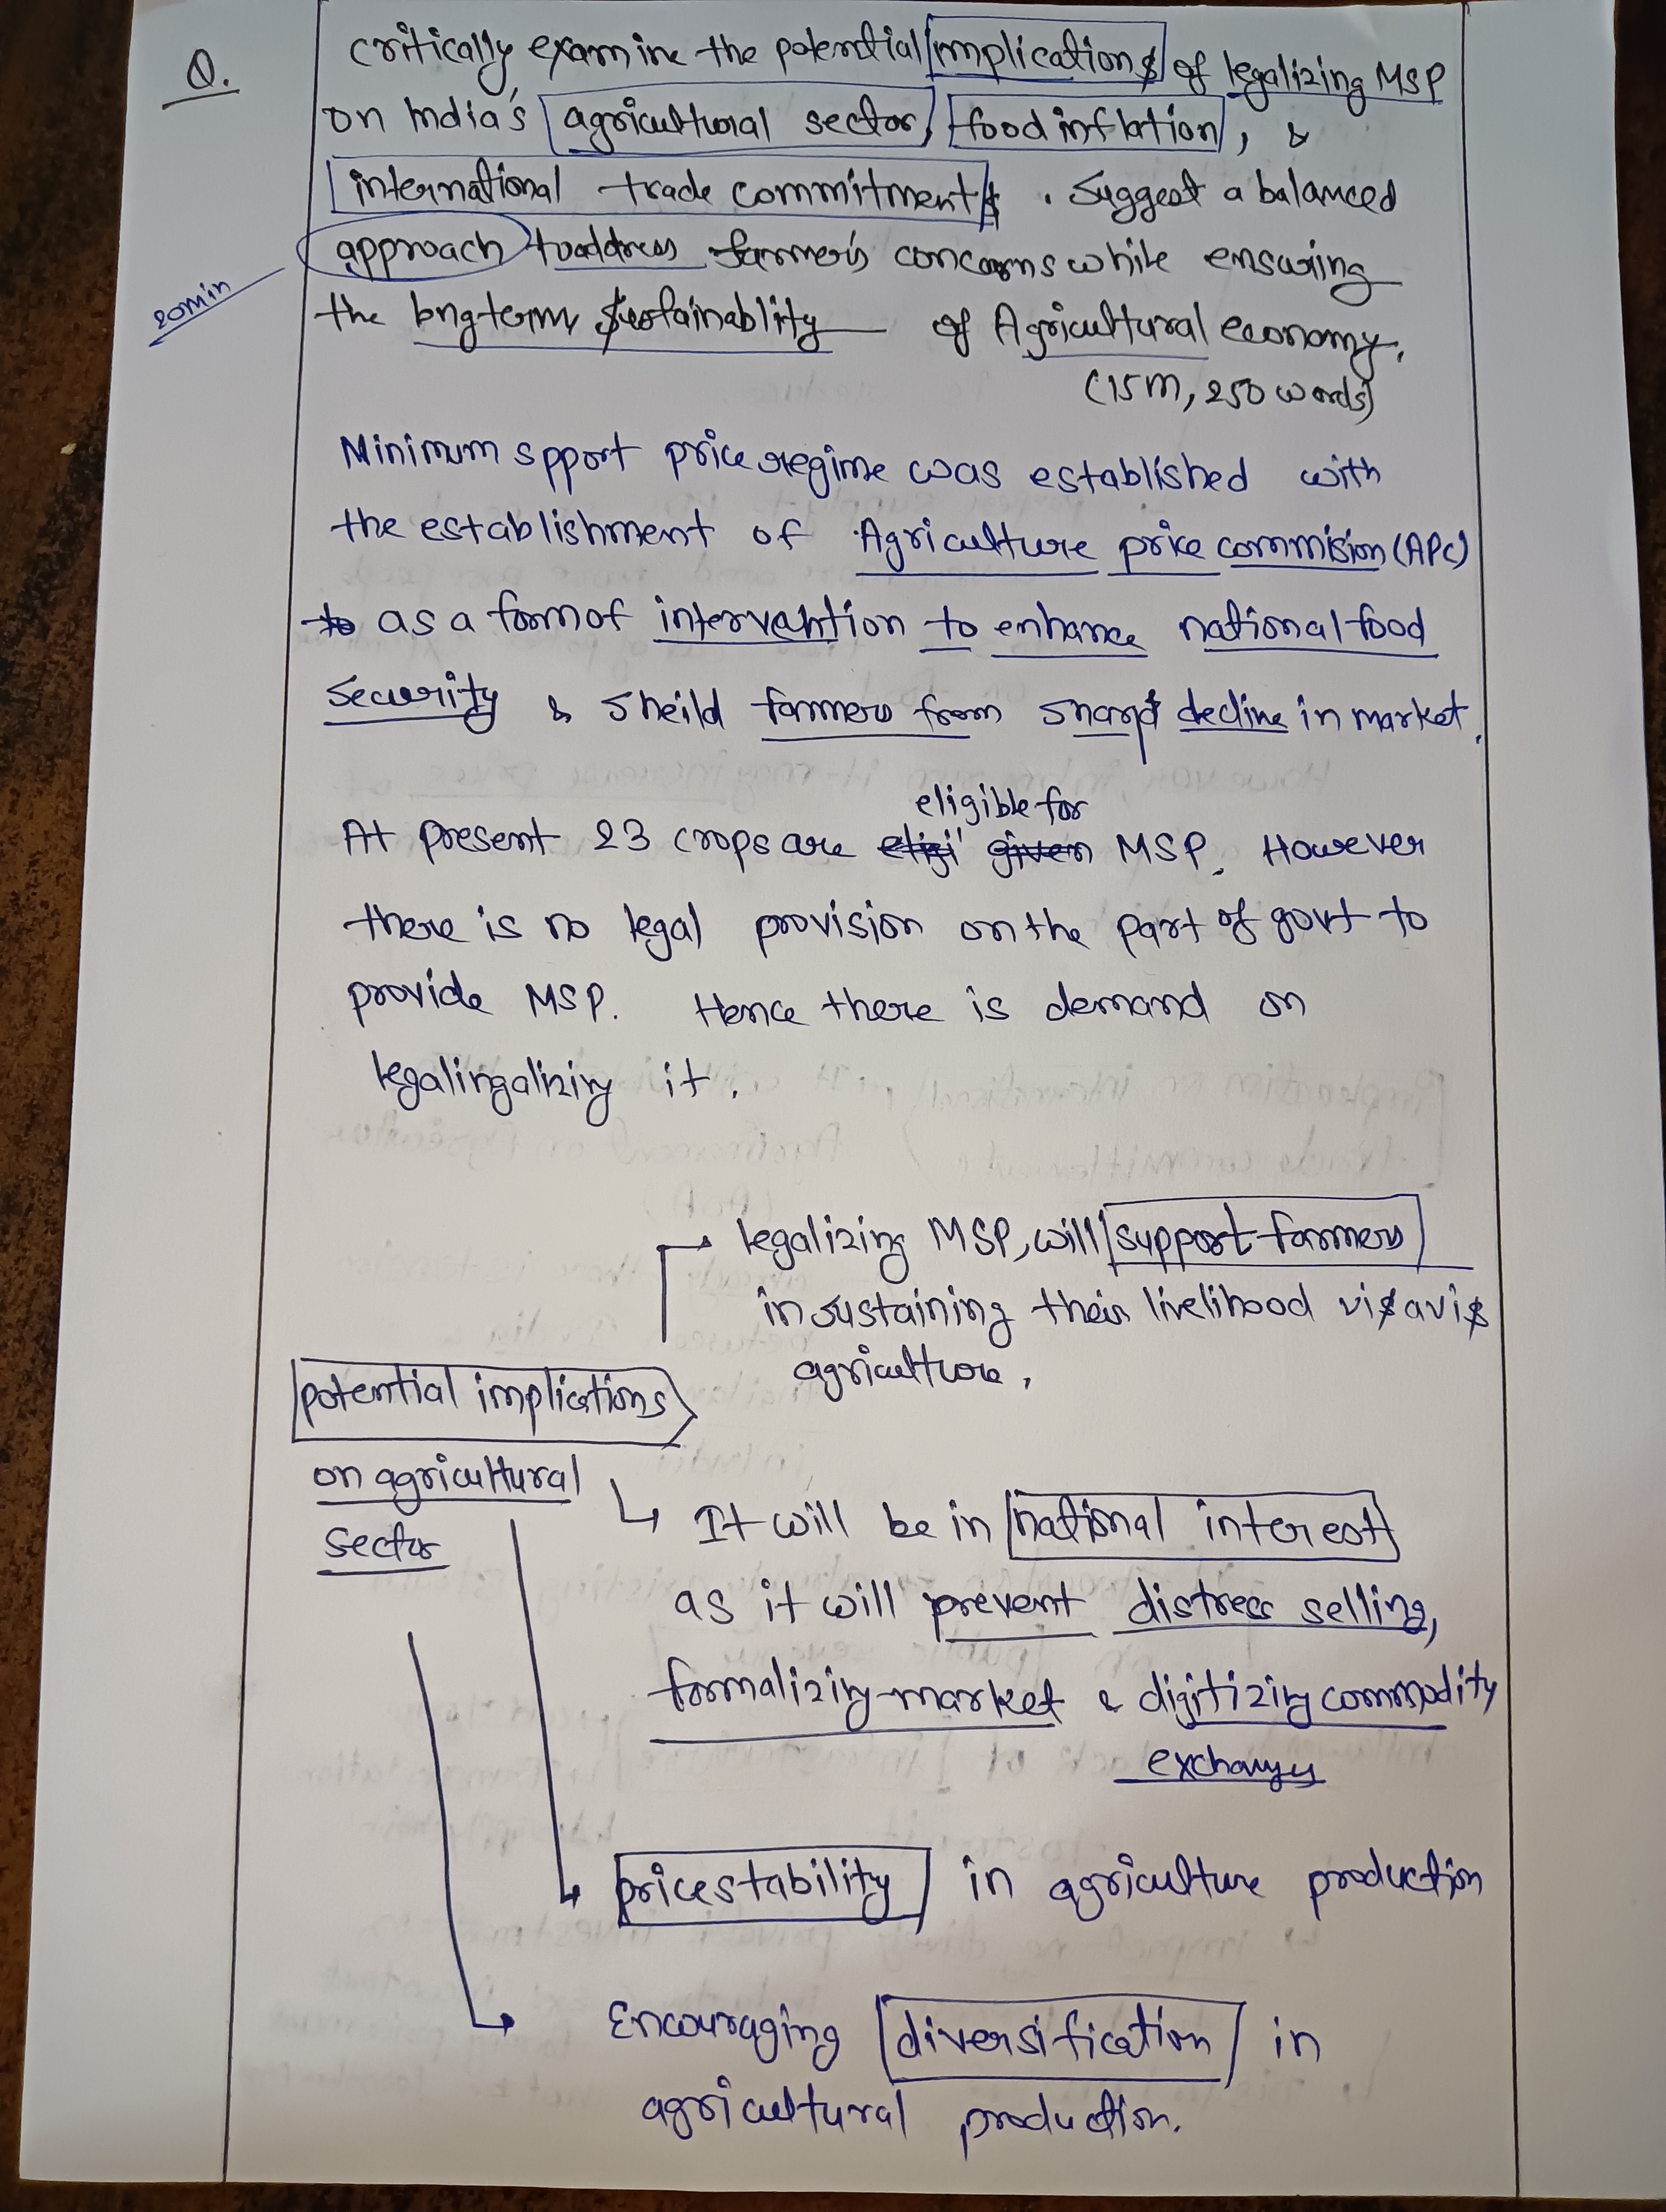 Q.
critically examine the potential implications of legalizing MSP
on India's agricultural sector, food inflation, &
international trade commitments. Suggest a balanced
approach to address farmer's concerns while ensuring
20min
the longterm sustainablity of Agricultural economy.
(15m, 250 words)
Minimum spport price regime was established with
the establishment of Agriculture price commision (APC)
to as a form of intervention to enhance national food
security & sheild farmers from sharp decline in market.
eligible for
At present 23 crops are eligi given MSP. However
there is no legal provision on the part of govt to
provide MSP. Hence there is demand on
legalingalizing it.
legalizing MSP, will support farmers
in sustaining their livelihood vis a vis
agriculture.
potential implications
on agricultural
sector
It will be in national interest
as it will prevent distress selling,
formalizing market & digitizing commodity
exchanges
price stability in agriculture production
Encouraging diversification in
agricultural production.